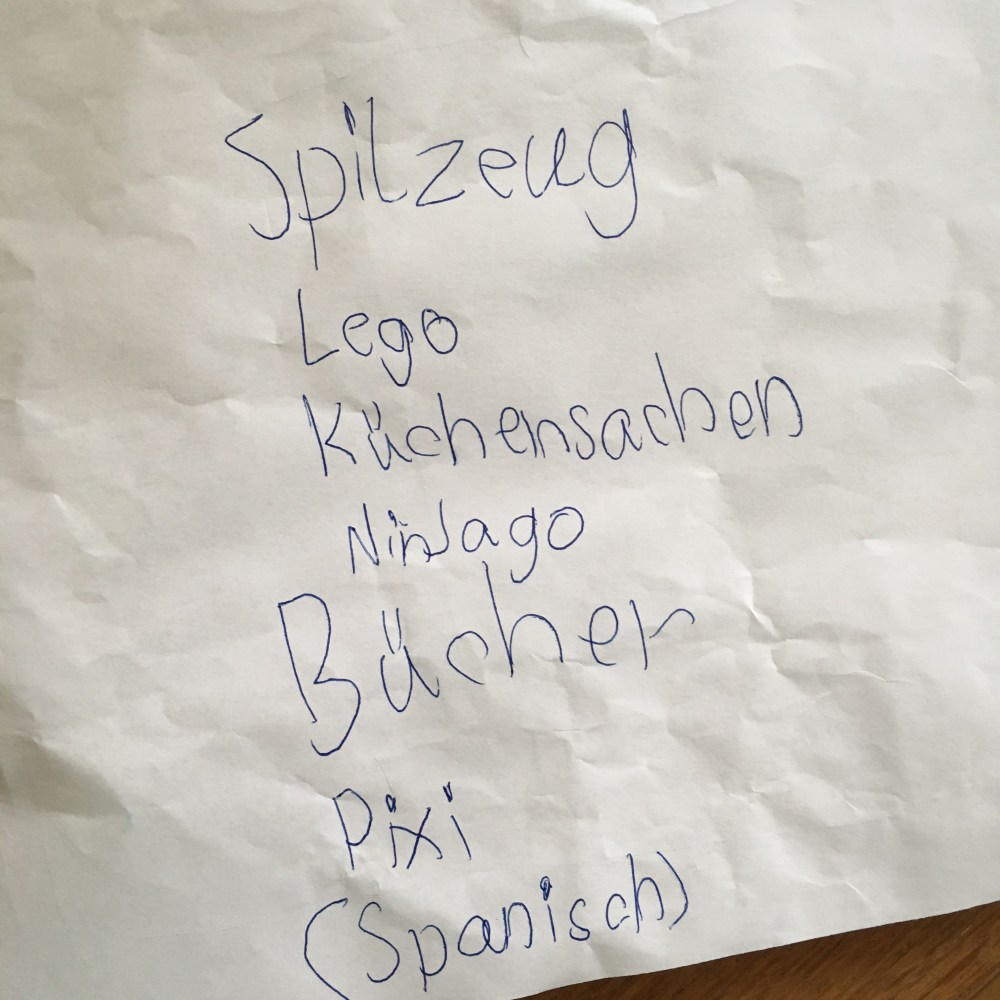 Spilzeug
Lego
Küchensachen
Ninjago
Bücher
Pixi
(Spanisch)